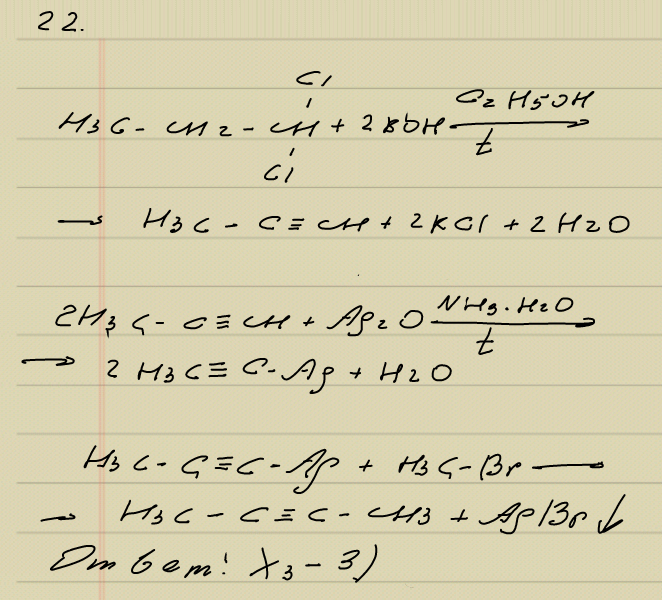 22.
Cl
H3C - CH2 - CH + 2KOH C2H5OH t
Cl
→ H3C - C ≡ CH + 2KCl + 2H2O
2H3C - C ≡ CH + Ag2O NH3·H2O t
→ 2 H3C ≡ C-Ag + H2O
H3C - C ≡ C - Ag + H3C - Br →
→ H3C - C ≡ C - CH3 + AgBr ↓
Ответ: X3 - 3)